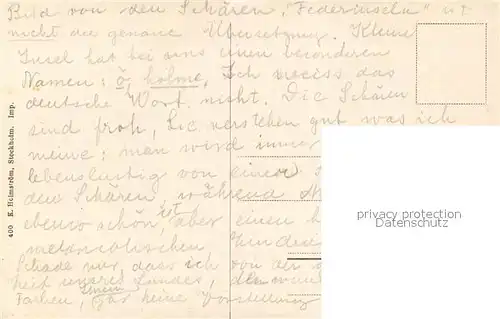 Bild von den Schären, "Federinseln" ist
nicht die genaue Übersetzung. Kleine
Insel hat bei uns einen besonderen
Namen: ö, holme. Ich weiss das
deutsche Wort nicht. Die Schären
sind froh, Sie verstehen gut was ich
meine: man wird immer
lebenslustig von einer
den Schären, während
ebenso schön ist, aber einen
melancholischen
Schade nur, dass ich von der
heit unseres Landes,
Farben, gar keine Vorstellung
400 E. Helmström, Stockholm. Imp.
privacy protection
Datenschutz